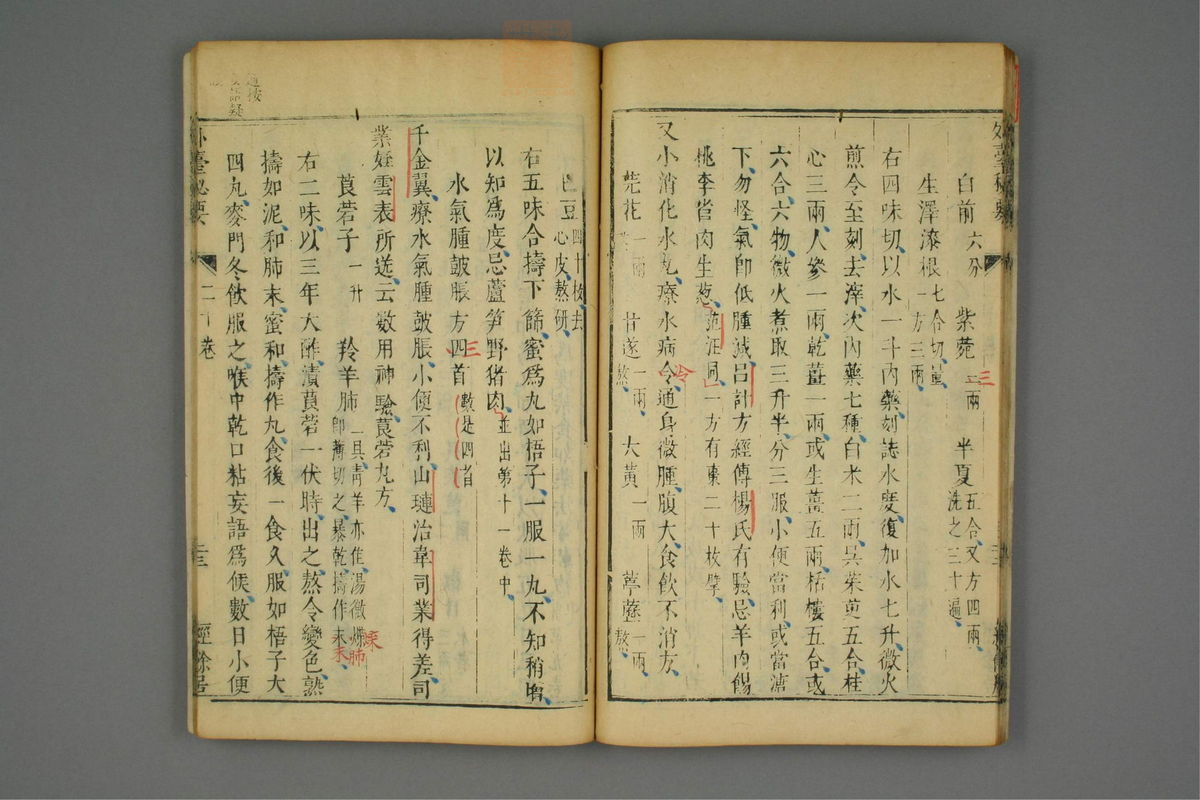 白前六分 紫菀二兩 三 半夏五合又方四兩洗之三十遍
生澤漆根七合切量一方三兩
右四味切以水一斗內藥刻誌水度復加水七升微火
煎令至刻去滓次內藥七種白朮二兩吳茱萸五合桂
心三兩人參一兩乾薑一兩或生薑五兩栝樓五合或
六合六物微火煮取三升半分三服小便當利或當溏
下勿怪氣卽低腫減呂計方經傳楊氏有驗忌羊肉餳
桃李雀肉生葱范汪同一方有棗二十枚擘
又小消化水丸療水病令通身微腫腹大食飲不消方
冷
芫花一兩 甘遂一兩熬 大黃一兩 葶藶一兩熬
巴豆四十枚去心皮熬研
右五味合擣下篩蜜爲丸如梧子一服一丸不知稍增
以知爲度忌蘆笋野猪肉並出第十一卷中
水氣腫鼓脹方四首 三
數是四首
千金翼療水氣腫鼓脹小便不利山璉治韋司業得差司
業姪雲表所送云數用神驗莨菪丸方
莨菪子一升 羚羊肺一具靑羊亦佳湯微煠肺卽薄切之暴乾擣作末
右二味以三年大酢漬莨菪一伏時出之熬令變色熟
擣如泥和肺末蜜和擣作丸食後一食久服如梧子大
四丸麥門冬飲服之喉中乾口粘妄語爲候數日小便
外臺秘要 二十卷 經餘居